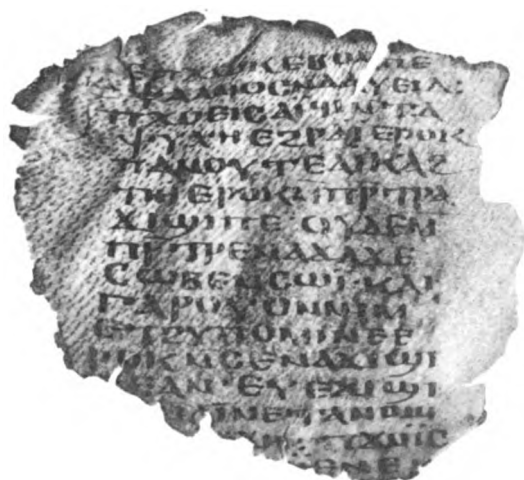 ⲉⲃⲟⲗ ⲡⲉ
ⲯⲁⲗⲙⲟⲥ ⲛⲇⲁⲩⲉⲓⲇ:
ⲡϫⲟⲉⲓⲥ ⲁⲓϥⲓ ⲛⲧⲁ
ⲯⲩⲭⲏ ⲉϩⲣⲁⲓ ⲉⲣⲱⲕ
ⲡⲁⲛⲟⲩⲧⲉ ⲁⲓⲕⲁϩ
ⲧⲏ ⲉⲣⲱⲕ: ⲙⲡⲣⲧⲣⲁ
ϫⲓϣⲓⲡⲉ ⲟⲩⲇⲉ ⲙ
ⲡⲣⲧⲣⲉⲛⲁϫⲁϫⲉ
ⲥⲱⲃⲉ ⲛⲥⲱⲓ· ⲕⲁⲓ
ⲅⲁⲣ ⲟⲩⲟⲛ ⲛⲓⲙ
ⲉⲧϩⲩⲡⲟⲙⲓⲛⲉ ⲉ
ⲣⲱⲕ ⲛⲥⲉⲛⲁϫⲓϣⲓ
ⲡⲉ ⲁⲛ· ⲉⲩⲉϫⲓϣⲓ